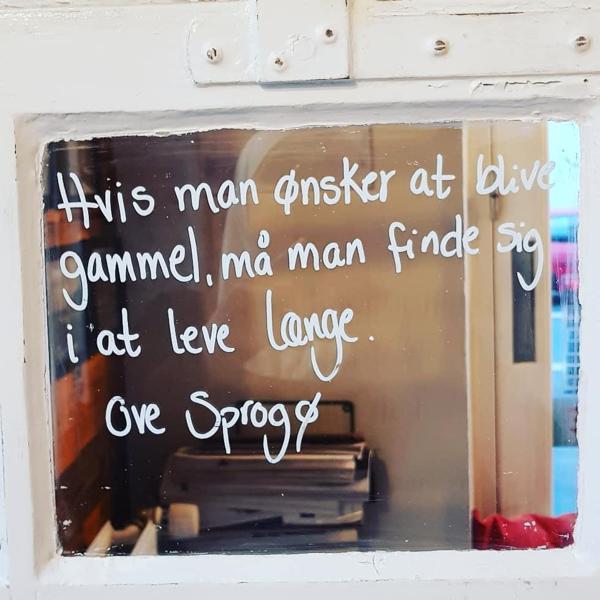 Hvis man ønsker at blive
gammel, må man finde sig
i at leve længe.
Ove Sprogø